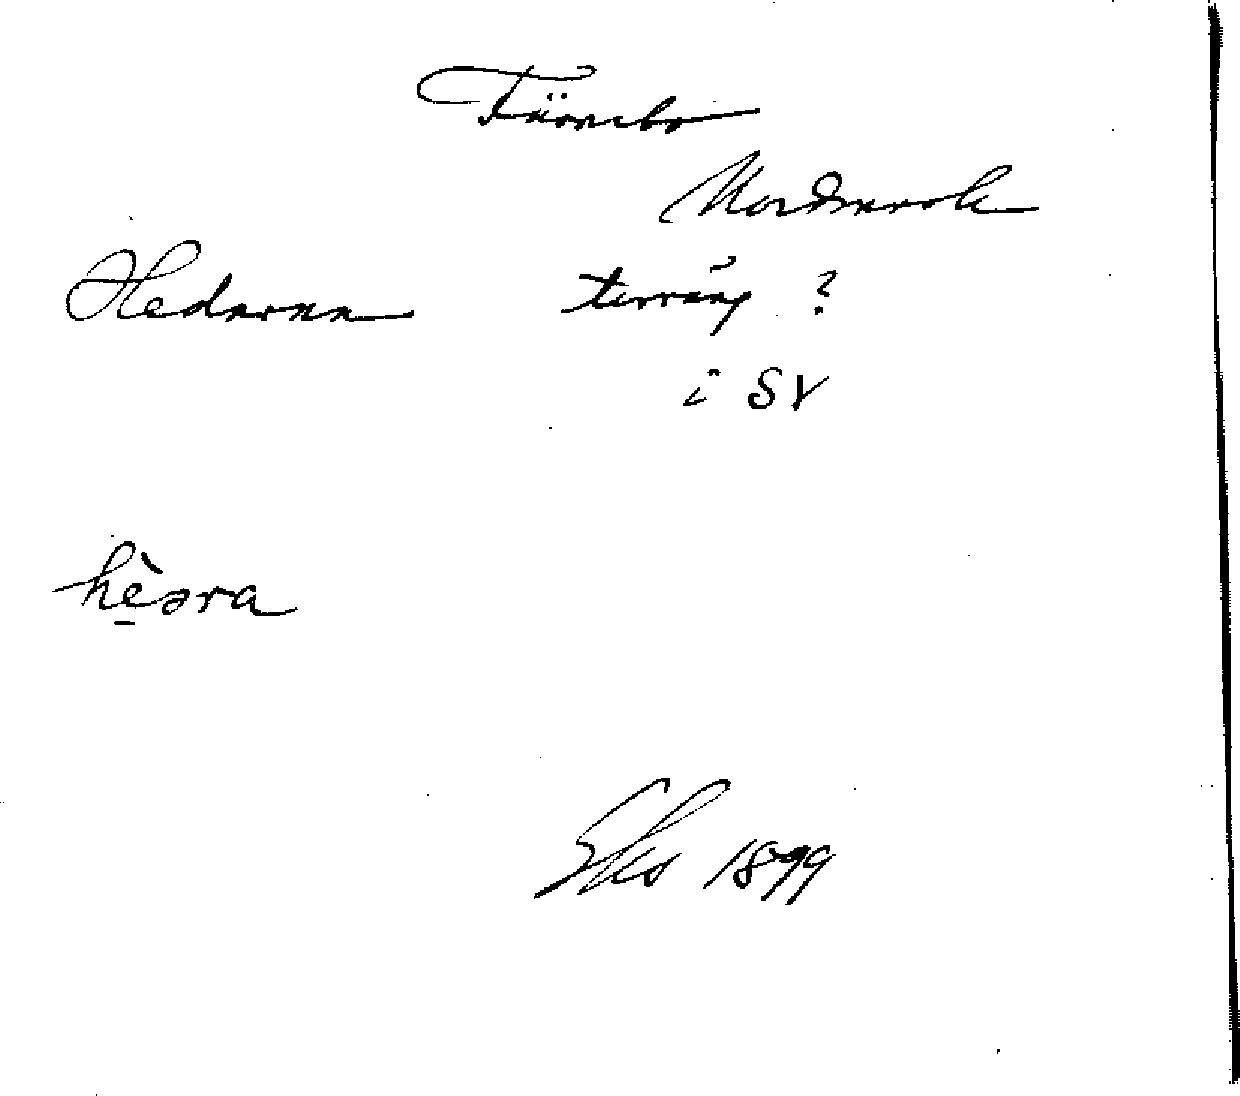 Färnebo
Nordmark
Hedarna terräng ?
i SV
hèəra
Eks 1899